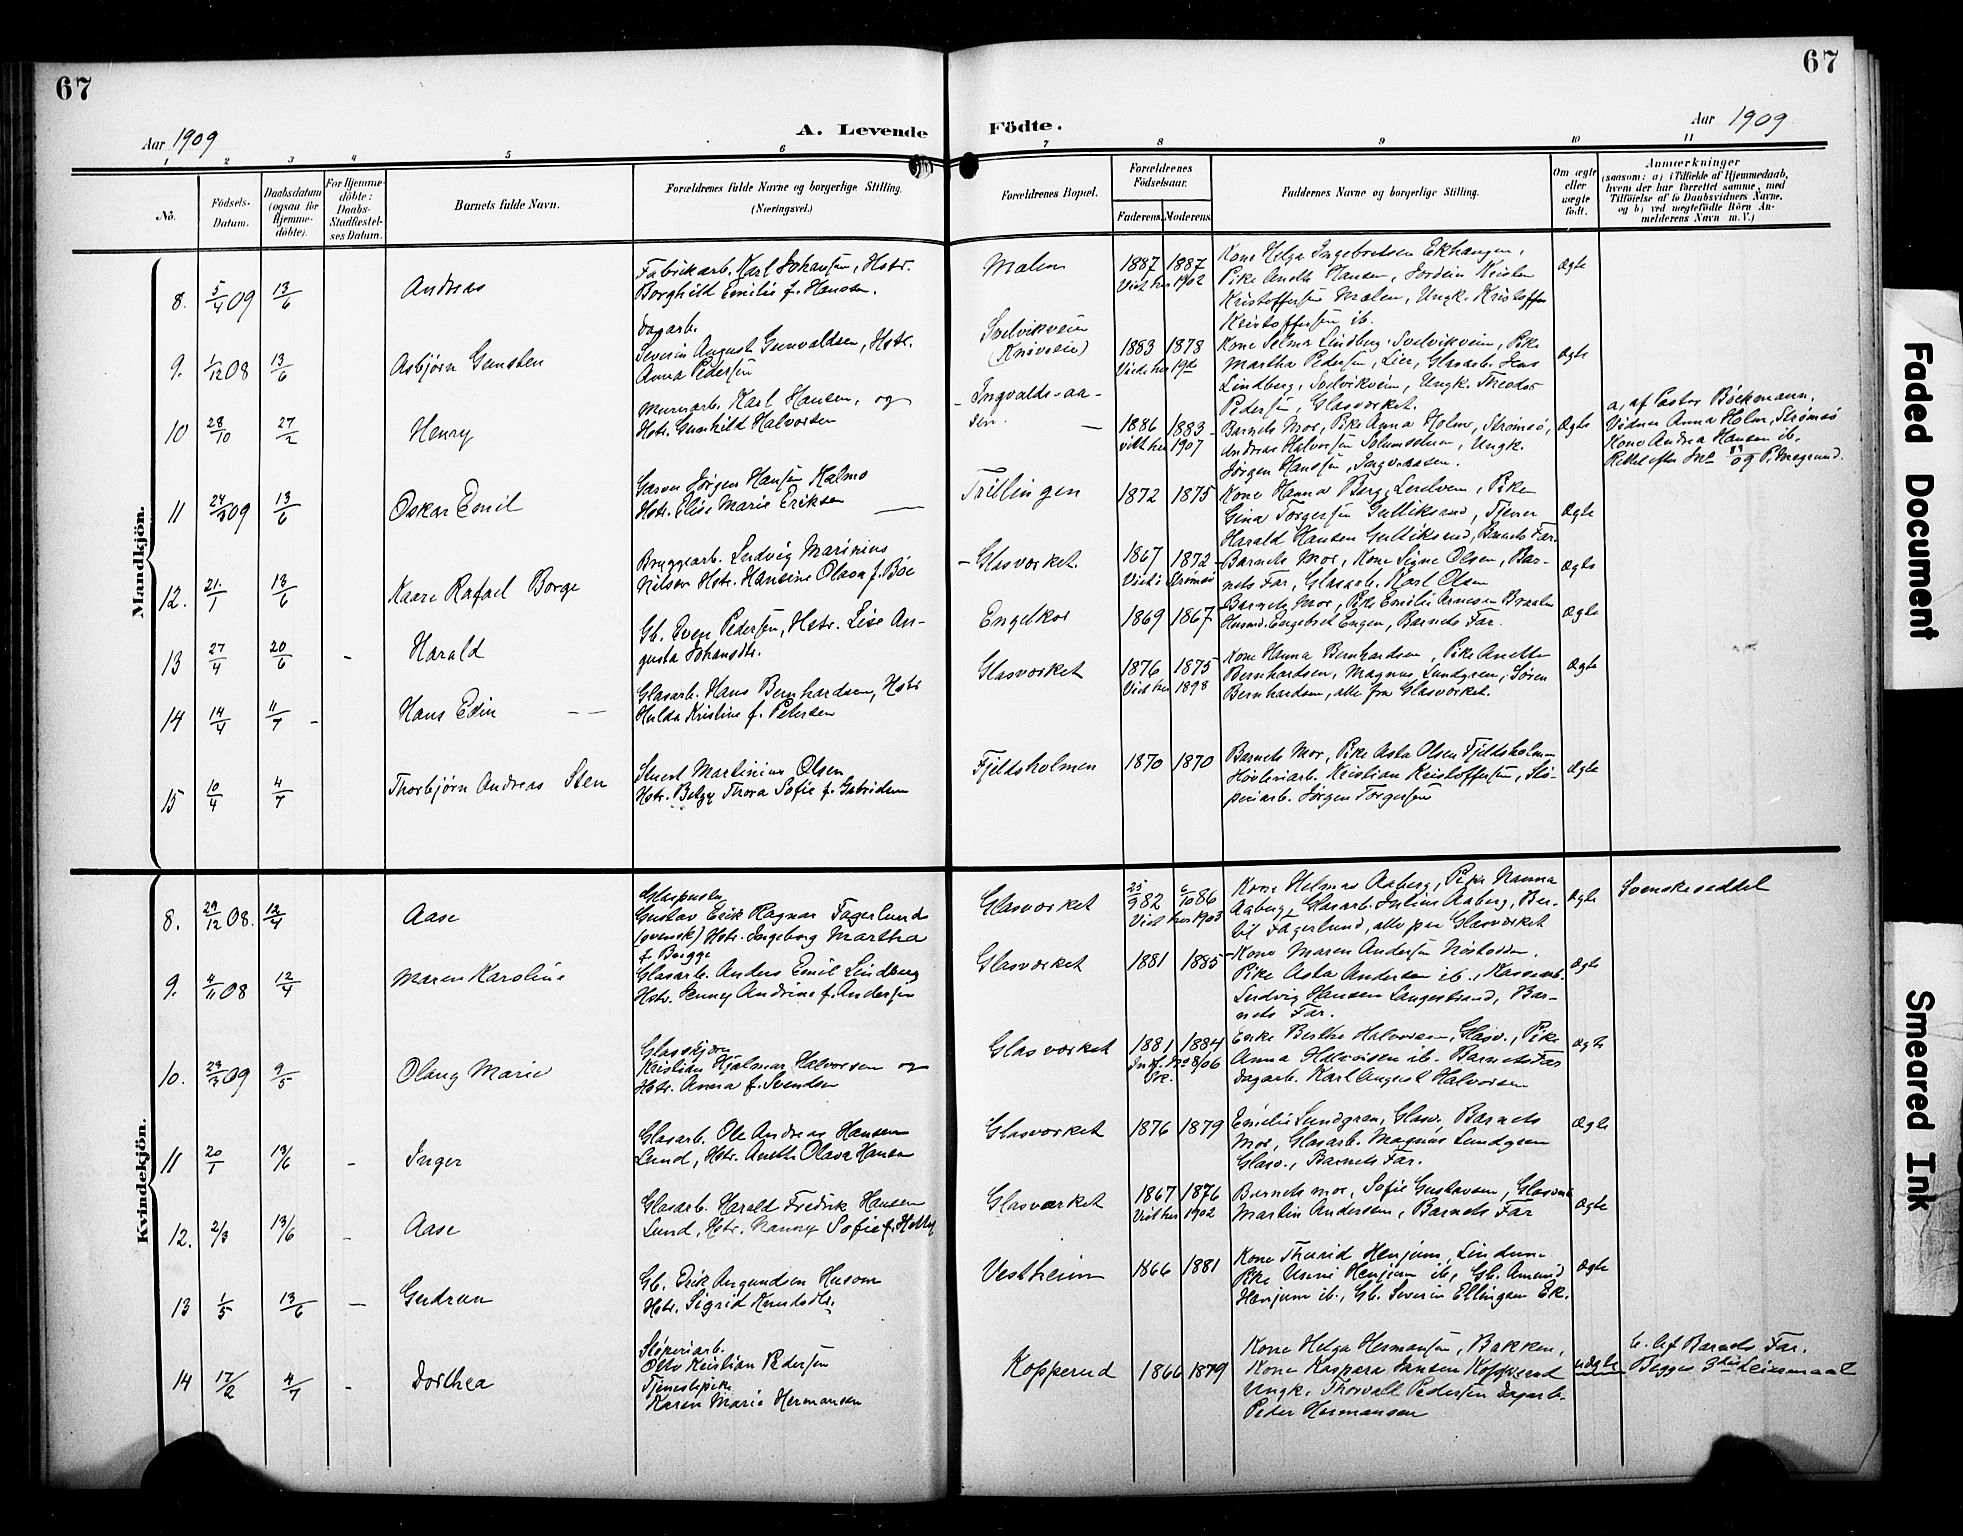 67
67
Aar 1909
A. Levende
Födte.
Aar 1909
1 2 3 4 5 6 7 8 9 10 11
No.
Födsels-
Datum.
Daabsdatum
(ogsaa for
Hjemme-
döbte).
For Hjemme-
döbte:
Daabs-
Stadfæstel-
ses Datum.
Barnets fulde Navn.
Forældrenes fulde Navne og borgerlige Stilling.
(Næringsvei.)
Forældrenes Bopæl.
Forældrenes
Födselsaar.
Faderens.
Moderens.
Faddernes Navne og borgerlige Stilling.
Om ægte
eller
uægte
født.
Anmærkninger
(saasom: a) i Tilfælde af Hjemmedaab,
hvem der har forrettet samme, med
Tilføielse af to Daabsvidners Navne,
og b) ved uægtefödte Börn An-
melderens Navn m. V.)
Mandkjön.
8. 5/4 09 13/6 Andreas
Fabrikarb. Karl Johansen, Hstr.
Borghild Emilie f. Hansen.
Malen
1887 1887
Viet her 1902
Kone Helga Ingebretsen Ekhaugen,
Pike Aneth Hansen, Kristen
Kristoffersen Malen, Ungk. Kristoffer
Kristoffersen ib.
Ægte
9. 1/12 08 13/6 Asbjørn Gunsten
Dagarb.
Severin August Gunvaldsen, Hstr.
Anna Pedersen
Svelvikveien
1883 1878
Viet her
Kone Selma Lindberg Svelvikveien, Pike
Martha Pedersen, Lier, Glasarb. Jens
Lindberg, Svelvikveien, Ungk. Theodor
Pedersen, Glasværket.
Ægte
10 28/10 27/2 Henry
Murarb. Karl Hansen, og
Hstr. Gunhild Halvorsen
Ingvalds-aa-
sen.
1886 1883
viet her 1907
Barnets Mor, Pike Anna Holm, Strømsø,
Andreas Halvorsen, Ungk.
Jørgen Hansen, Ingv.aasen.
Ægte
a, af Pastor Böckmann.
Vidner Anna Holm, Strømsø
Kone Andrea Hansen ib.
11 24/3 09 13/6 Oskar Emil
Garver Jørgen Hansen Kalmo
Hstr. Elise Marie Eriksen
Trillingen
1872 1875
Kone Hanna Berg, Pike
Gina Torgersen Gulliksrud, Tjener
Harald Hansen Gulliksrud, Barnets Far.
Ægte
12. 21/1 13/6 Kaare Rafael Borge
Bryggearb. Ludvig Marinius
Nilsen Hstr. Hansine Olava f. Boe
Glasværket.
1867 1872
Viet i Strømsø
Barnets Mor, Kone Signe Olsen, Bar-
nets Far, Glasarb. Karl Olsen
Ægte
13 27/4 20/6 - Harald
Gb. Even Pedersen, Hstr. Lise Au-
gusta Johansdtr.
Engelkor
1869 1867
Barnets Mor, Pike Emilie Arnesen
Husmd. Engebret Engen, Barnets Far.
Ægte
14 14/4 11/7 - Hans Edin
Glasarb. Hans Bernhardsen, Hstr
Hulda Kristine f. Petersen
Glasværket
1876 1875
Viet her 1898
Kone Hanna Bernhardsen, Pike Anette
Bernhardsen, Magnus Lundgren, Søren
Bernhardsen, alle fra Glasværket.
Ægte
15 10/4 4/7 Thorbjørn Andreas Sten
Stuert Martinius Olsen
Hstr. Betzy Thora Sofie f. Gabrielsen
Fjeldsholmen
1870 1870
Barnets Mor, Pike Asta Olsen Fjeldsholmen
Høvleriarb. Kristian Kristoffersen, Slø-
periarb. Jørgen Torgersen
Ægte
Kvindekjön.
8. 29/12 08. 12/4 Aase
Glaspuster
Gustav Erik Ragnar Fagerlund
(svensk) Hstr. Ingeborg Martha
f. Bugge
Glasværket
25/9 82 6/10 86
Viet her 1903
Kone Helmas Aaberg, Pike Nanna
Aaberg, Glasarb. Julius Aaberg, Ber-
til Fagerlund, alle paa Glasværket
Ægte
Svenskeseddel
9. 4/11 08 12/4 Maren Karoline
Glasarb. Anders Emil Lindberg
Hstr. Jenny Andrine f. Andersen
Glasværket
1881 1885
Kone Maren Andersen
Pike Asta Andersen ib.,
Ludvig Hansen Langestrand, Bar-
nets Far.
Ægte
10. 23/3 09 9/5 Olaug Marie
Glasskjærer
Kristian Hjalmar Halvorsen og
Hstr. Anna f. Svendsen
Glasværket
1881 1884
Enke Berthe Halvorsen, Glasv., Pike
Anna Halvorsen ib. Barnets Far
Dagarb. Karl August Halvorsen
Ægte
11 20/1 13/6 - Inger
Glasarb. Ole Andreas Hansen
Lund, Hstr. Anette Olava Hansen
Glasværket
1876 1879
Emelie Lundgren, Glasv. Barnets
Mor, Glasarb. Magnus Lundgren
Glasv., Barnets Far.
Ægte
12. 2/3 13/6 - Aase
Glasarb. Harald Fredrik Hansen
Lund, Hstr. Nanny Sofie f. Holby
Glasværket
1867 1876
Viet her 1902
Barnets mor, Sofie Gustavsen, Glasværk
Martin Andersen, Barnets Far
Ægte
13 1/5 13/6 - Gudrun
Gb. Erik Amundsen Husom
Hstr. Sigrid Knudsdtr.
Vestheim
1866 1881
Kone Thurid Henjum, Lindum.
Pike Unni Henjum ib, Gb. Amund
Henjum ib., Gb. Severin Ellingsen Ek.
Ægte
14 17/2 4/7 - Dorthea
Sløperiarb.
Otto Kristian Pedersen
Tjenestepike
Karen Marie Hermansen
Kopperud
1866 1879
Kone Helga Hermansen, Bakken,
Kone Kaspera Jansen Kopperud
Ungk. Thorvald Pedersen Dagarb.
Peder Hermansen
uægte
b. Af Barnets Far.
Begges 3die Leiermaal
Faded Document
Smeared Ink